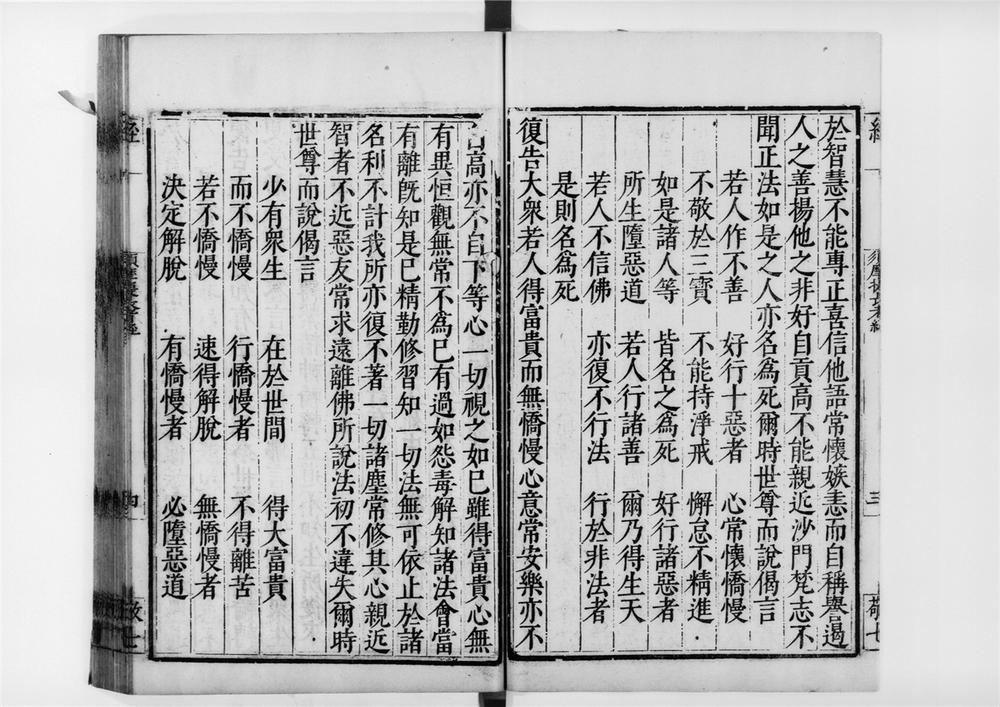 於智慧不能專正喜信他語常懷嫉恚而自稱譽遏
人之善楊他之非好自貢高不能親近沙門梵志不
聞正法如是之人亦名為死爾時世尊而說偈言
若人作不善 好行十惡者 心常懷憍慢
不敬於三寶 不能持淨戒 懈怠不精進
如是諸人等 皆名之為死 好行諸惡者
所生墮惡道 若人行諸善 爾乃得生天
若人不信佛 亦復不行法 行於非法者
是則名為死
復告大衆若人得富貴而無憍慢心意常安樂亦不
高亦不自下等心一切視之如己雖得富貴心無
有異恒觀無常不為已有過如怨毒解知諸法會當
有離旣知是已精勤修習知一切法無可依止於諸
名利不計我所亦復不著一切諸塵常修其心親近
智者不近惡友常求遠離佛所說法初不違失爾時
世尊而說偈言
少有衆生 在於世間 得大富貴
而不憍慢 行憍慢者 不得離苦
若不憍慢 速得解脫 無憍慢者
決定解脫 有憍慢者 必墮惡道
三
敬七
經
四
七